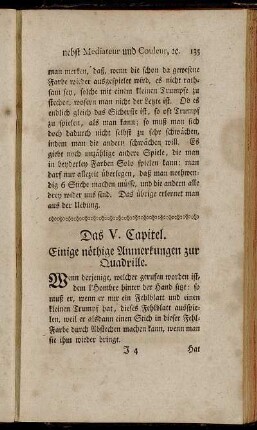 nebst Mediateur und Couleur, ꝛc. 135
man merken, daß, wenn die schon da gewesene
Farbe wieder ausgespielet wird, es nicht rath-
sam sey, solche mit einem kleinen Trumpfe zu
stechen, wofern man nicht der Letzte ist. Ob es
endlich gleich das Sicherste ist, so oft Trumpf
zu spielen, als man kann; so muß man sich
doch dadurch nicht selbst zu sehr schwächen,
indem man die andern schwächen will. Es
giebt noch unzählige andere Spiele, die man
in beyderley Farben Solo spielen kann: man
darf nur allezeit überlegen, daß man nothwen-
dig 6 Stiche machen müsse, und die andern alle
drey wider uns sind. Das übrige erlernet man
aus der Uebung.
Das V. Capitel.
Einige nöthige Anmerkungen zur
Quadrille.
Wenn derjenige, welcher gerufen worden ist,
dem l'Hombre hinter der Hand sitzt: so
muß er, wenn er ein Fehlblatt und einen
kleinen Trumpf hat, dieses Fehlblatt ausspie-
len, weil er alsdann einen Stich in dieser Fehl-
Farbe durch Abstechen machen kann, wenn man
sie ihm wieder bringt.
J 4 Hat